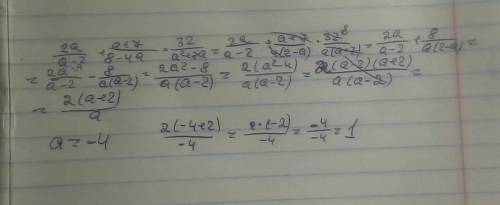 2a/(a-2) + (a+7)/(8-4a) · 32/(a²+7a) = 2a/(a-2) + (a+7)/(4(2-a)) · 32⁸/(a(a+7)) = 2a/(a-2) + 8/(a(2-a)) =
= 2a/(a-2) - 8/(a(a-2)) = (2a²-8)/(a(a-2)) = 2(a²-4)/(a(a-2)) = 2(a-2)(a+2)/(a(a-2)) =
= 2(a+2)/a
a = -4 2(-4+2)/-4 = 2·(-2)/-4 = -4/-4 = 1